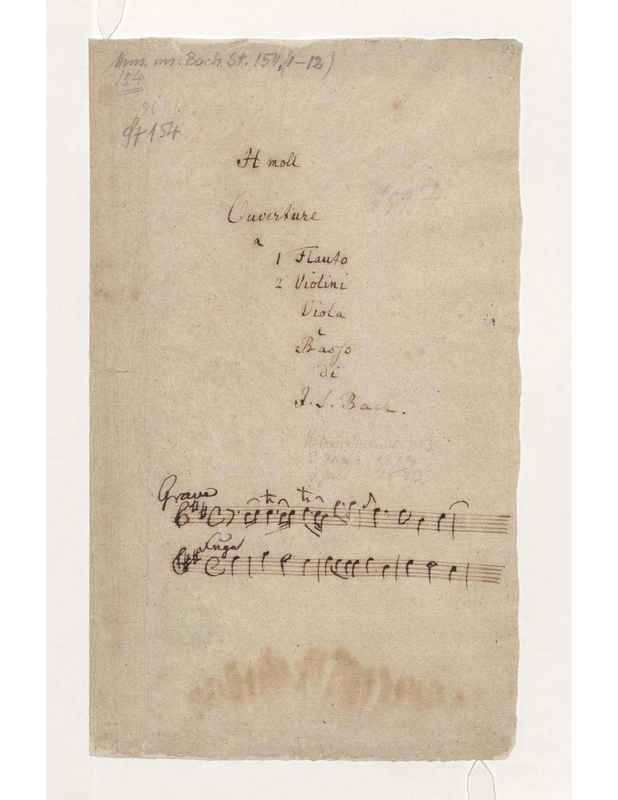 Mus. ms. Bach St. 154, (1-12)
154
St 154
H moll
Ouverture
a
1 Flauto
2 Violini
Viola
e
Basso
di
J. S. Bach.
Grave
tr tr
Fuga